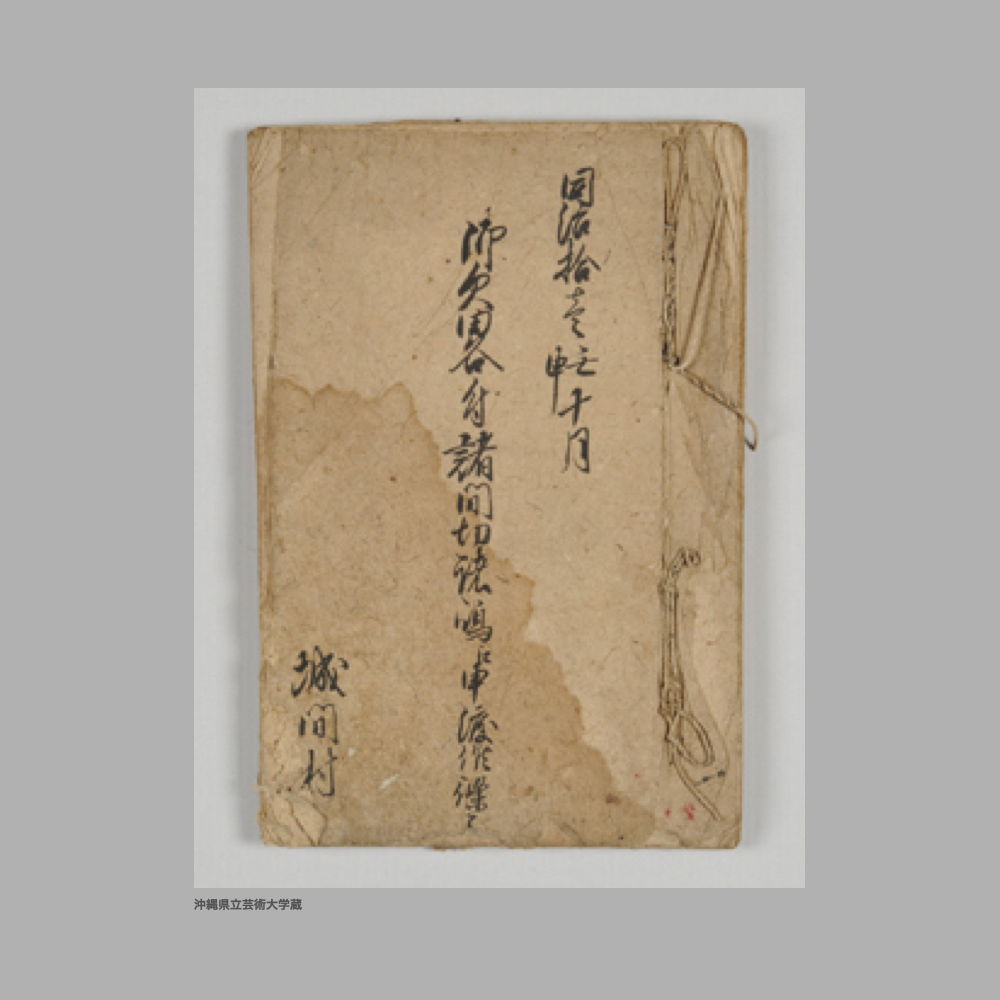 同治拾壱壬申十月
御欠畧付諸間切諸嶋申渡候條々
城間村
沖縄県立芸術大学蔵